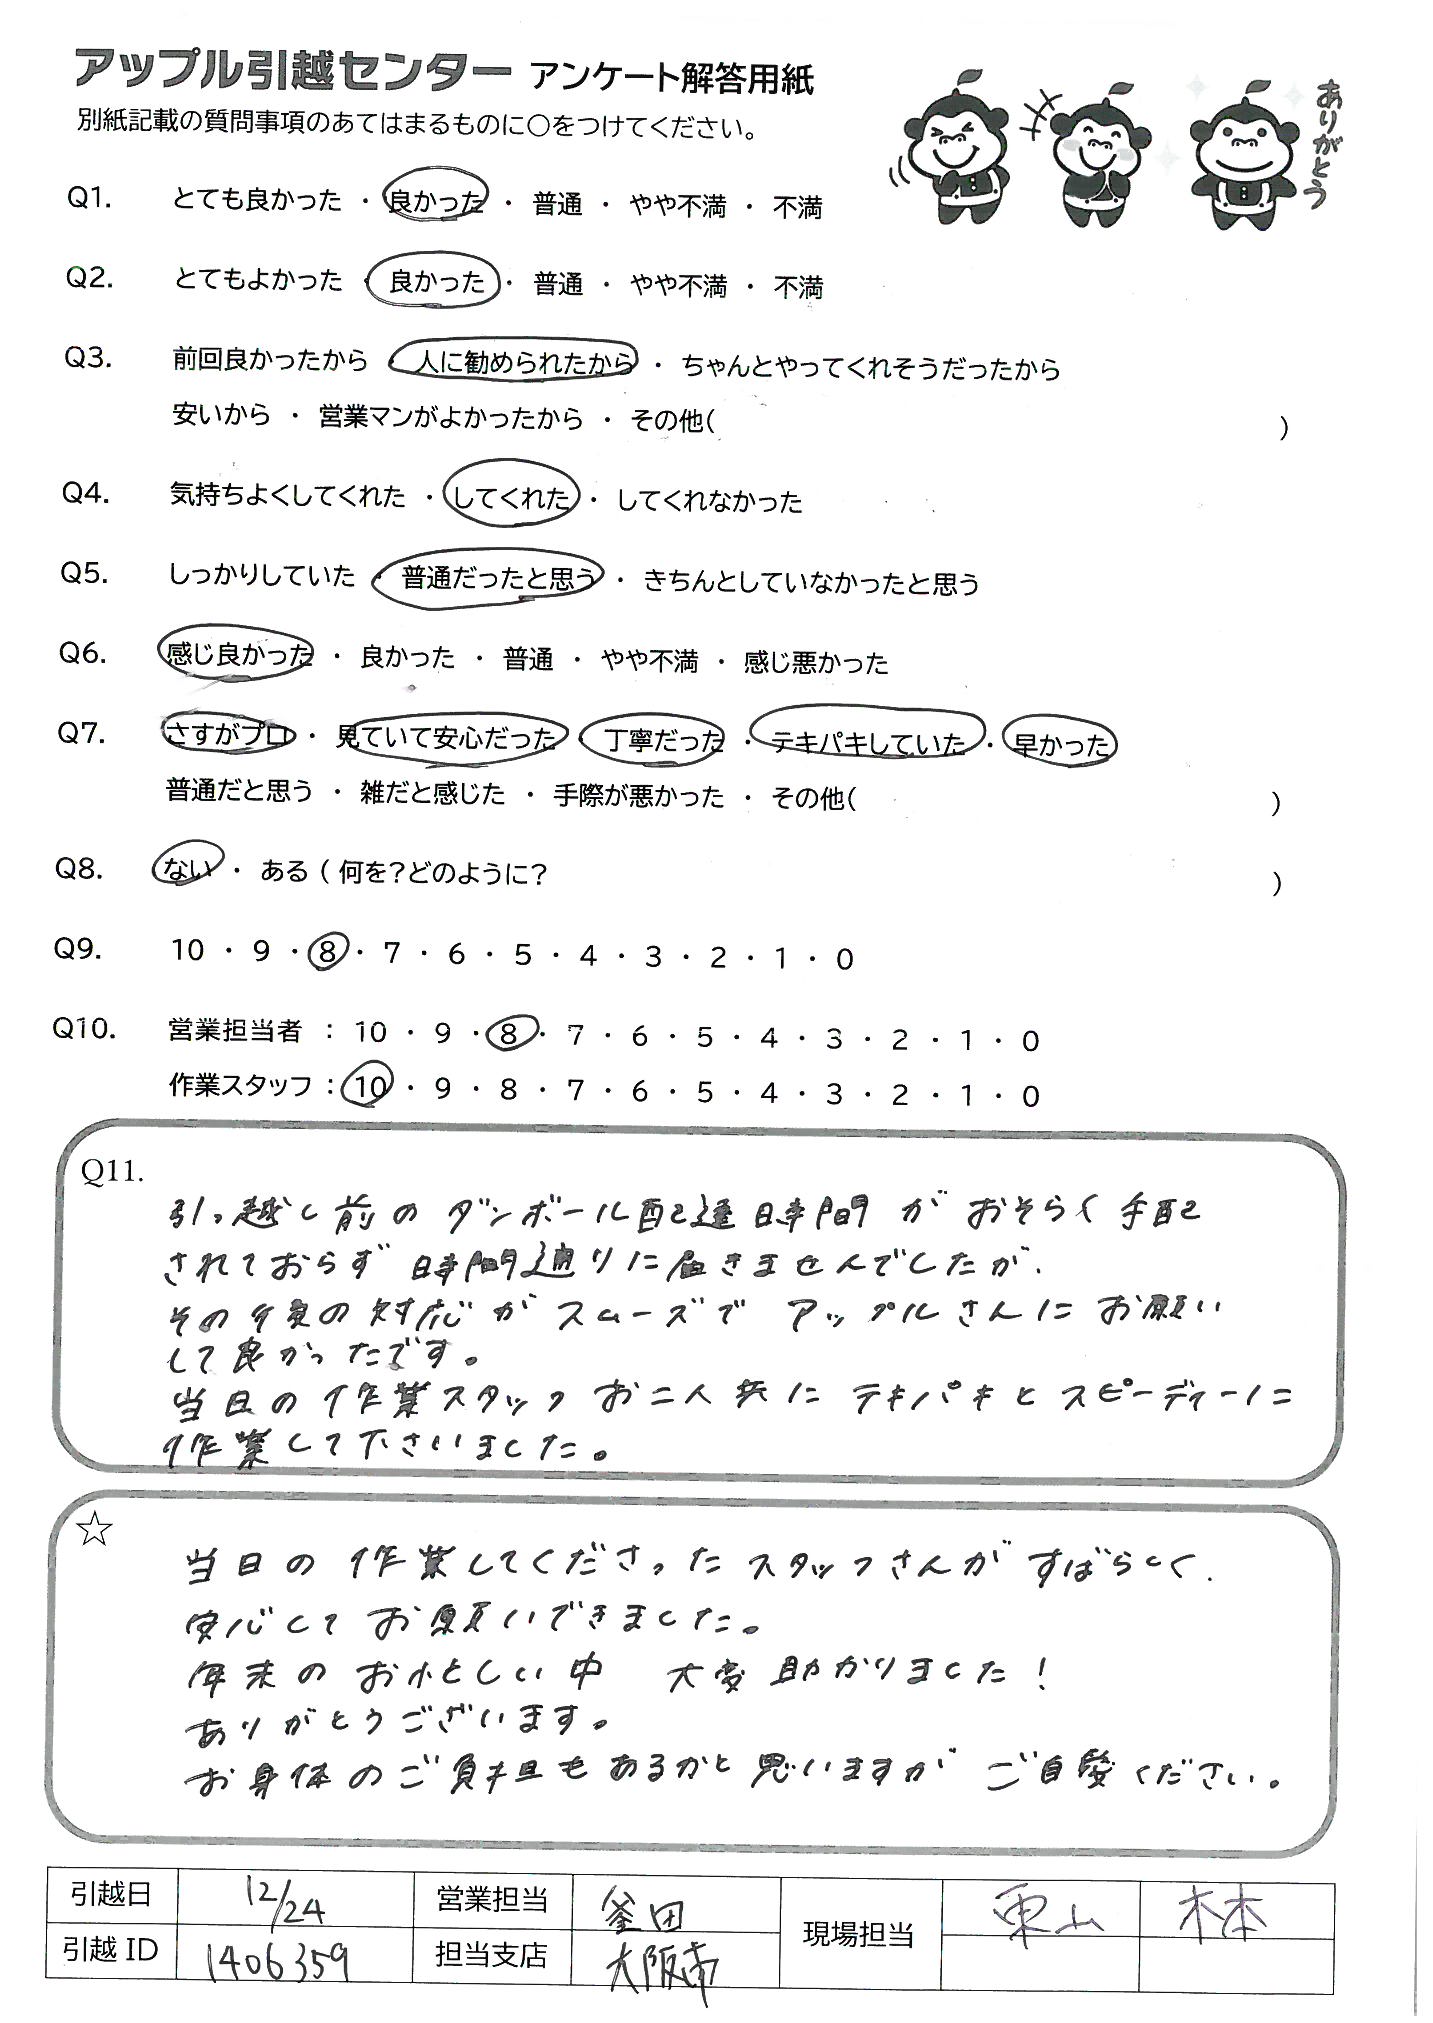 アップル引越センター アンケート解答用紙
別紙記載の質問事項のあてはまるものに○をつけてください。
ありがとう
Q1. とても良かった ・ 良かった ・ 普通 ・ やや不満 ・ 不満
Q2. とてもよかった ・ 良かった ・ 普通 ・ やや不満 ・ 不満
Q3. 前回良かったから ・ 人に勧められたから ・ ちゃんとやってくれそうだったから
安いから ・ 営業マンがよかったから ・ その他( )
Q4. 気持ちよくしてくれた ・ してくれた ・ してくれなかった
Q5. しっかりしていた ・ 普通だったと思う ・ きちんとしていなかったと思う
Q6. 感じ良かった ・ 良かった ・ 普通 ・ やや不満 ・ 感じ悪かった
Q7. さすがプロ ・ 見ていて安心だった ・ 丁寧だった ・ テキパキしていた ・ 早かった
普通だと思う ・ 雑だと感じた ・ 手際が悪かった ・ その他( )
Q8. ない ・ ある ( 何を?どのように? )
Q9. 10 ・ 9 ・ 8 ・ 7 ・ 6 ・ 5 ・ 4 ・ 3 ・ 2 ・ 1 ・ 0
Q10. 営業担当者 : 10 ・ 9 ・ 8 ・ 7 ・ 6 ・ 5 ・ 4 ・ 3 ・ 2 ・ 1 ・ 0
作業スタッフ : 10 ・ 9 ・ 8 ・ 7 ・ 6 ・ 5 ・ 4 ・ 3 ・ 2 ・ 1 ・ 0
Q11.
引っ越し前のダンボール配達時間がおそらく手配
されておらず時間通りに届きませんでしたが、
その後の対応がスムーズでアップルさんにお願い
して良かったです。
当日の作業スタッフお二人共にテキパキとスピーディーに
作業して下さいました。
☆
当日の作業してくださったスタッフさんがすばらしく、
安心してお願いできました。
年末のお忙しい中 大変助かりました!
ありがとうございます。
お身体のご負担もあるかと思いますがご自愛ください。
引越日 12/24 営業担当 釜田 現場担当 東山 木本
引越 ID 1406359 担当支店 大阪南